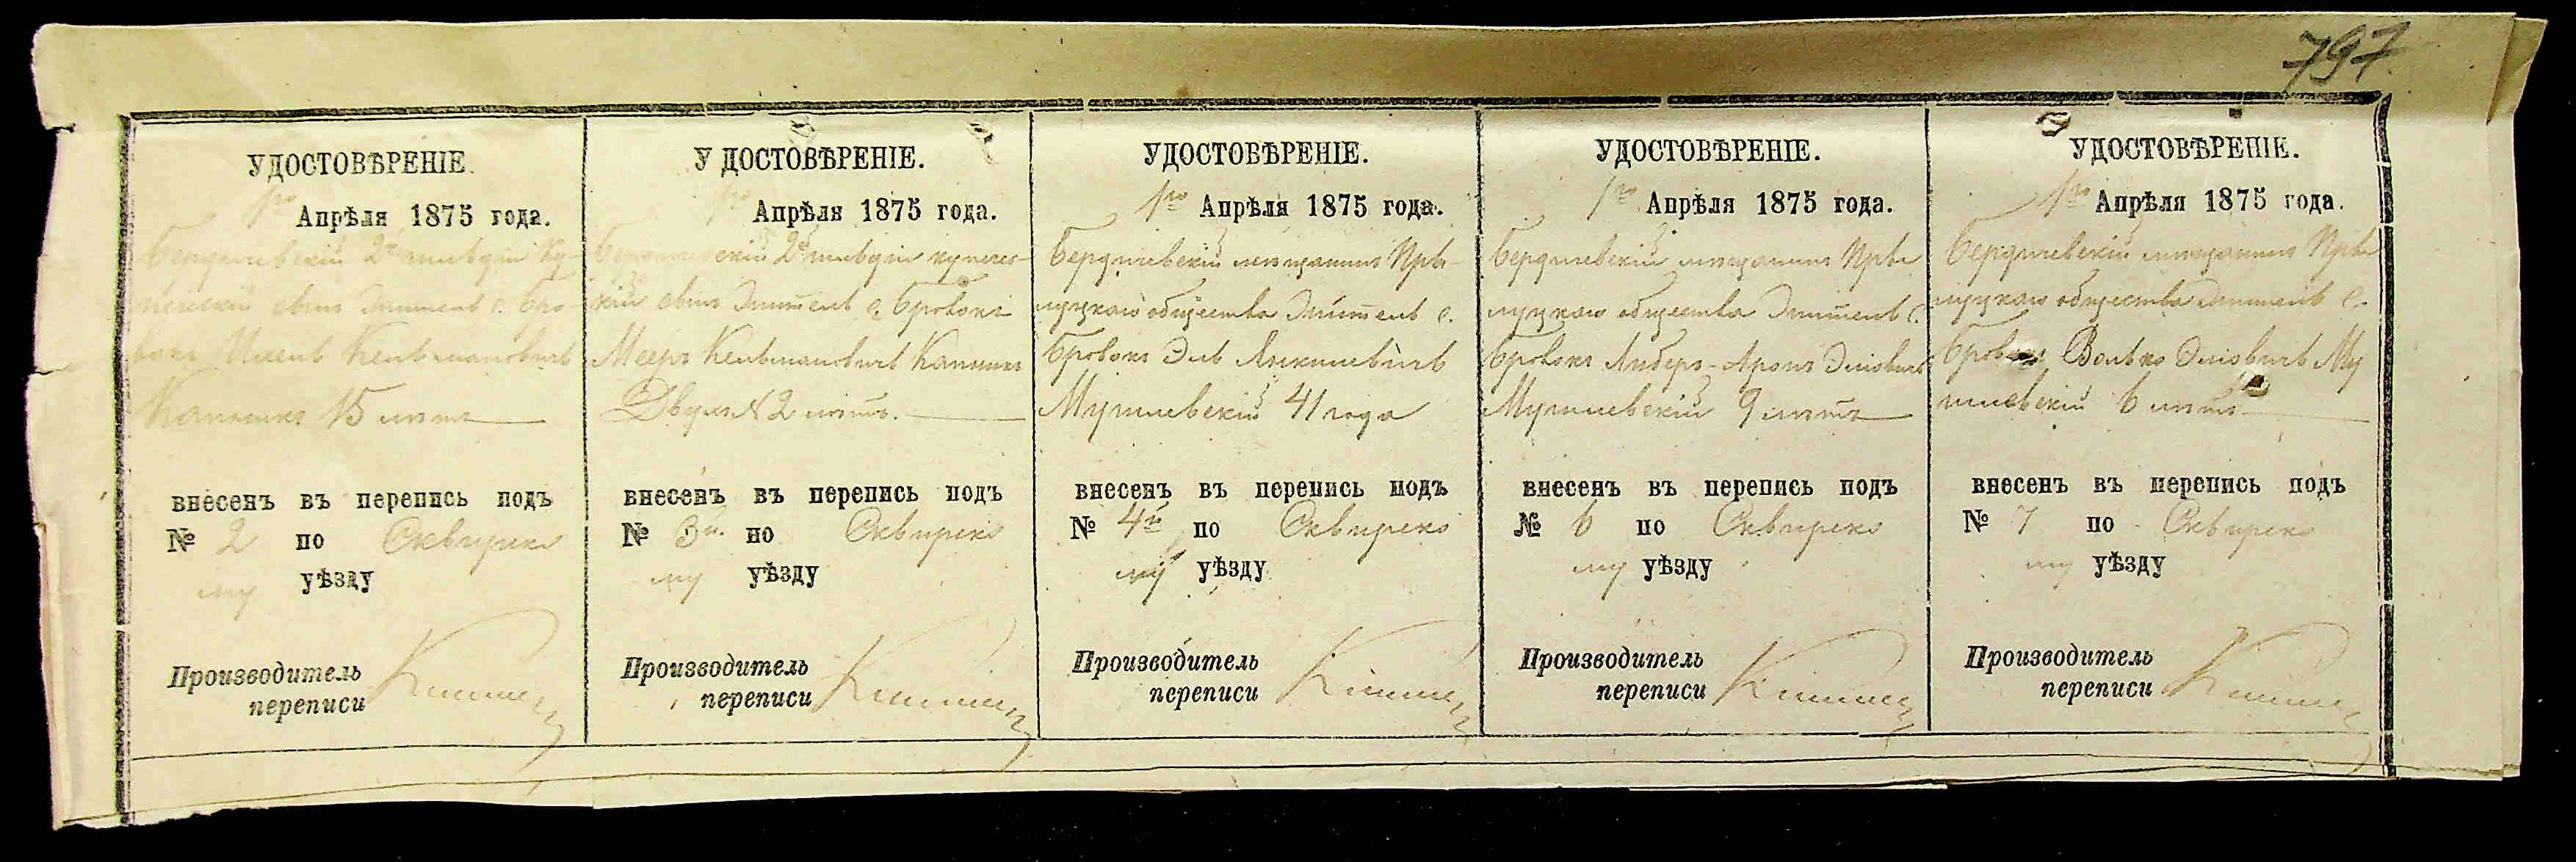 797
УДОСТОВѢРЕНІЕ.
1го Апрѣля 1875 года.
Бердичевскій 2й гильдіи Ку-
печескій сынъ житель с. Бро-
вокъ Кельмановичъ
15 лѣтъ
внесенъ въ перепись подъ
№ 2 по Сквирско
му уѣзду
Производитель
переписи
УДОСТОВѢРЕНІЕ.
1го Апрѣля 1875 года.
Бердичевскій 2й гильдіи купечес-
кій сынъ житель с. Бровокъ
Мееръ Кельмановичъ
Двухъ 2 лѣтъ.
внесенъ въ перепись подъ
№ 3й. по Сквирско
му уѣзду
Производитель
переписи
УДОСТОВѢРЕНІЕ.
1го Апрѣля 1875 года.
Бердичевскій мѣщанинъ Прѣ-
луцкаго общества житель с.
Бровокъ Эль Янкелевичъ
Мушлевскій 41 года
внесенъ въ перепись подъ
№ 4й по Сквирско
му уѣзду
Производитель
переписи
УДОСТОВѢРЕНІЕ.
1го Апрѣля 1875 года.
Бердичевскій мѣщанинъ Прѣ
луцкаго общества житель с.
Бровокъ Либеръ-Аронъ Эліовичъ
Мушлевскій 9 лѣтъ
внесенъ въ перепись подъ
№ 6 по Сквирско
му уѣзду
Производитель
переписи
УДОСТОВѢРЕНІЕ.
1го Апрѣля 1875 года.
Бердичевскій мѣщанинъ Прѣ
луцкаго общества житель с.
Бровокъ Волько Эліовичъ Му
шлевскій 6 лѣтъ
внесенъ въ перепись подъ
№ 7 по Сквирско
му уѣзду
Производитель
переписи